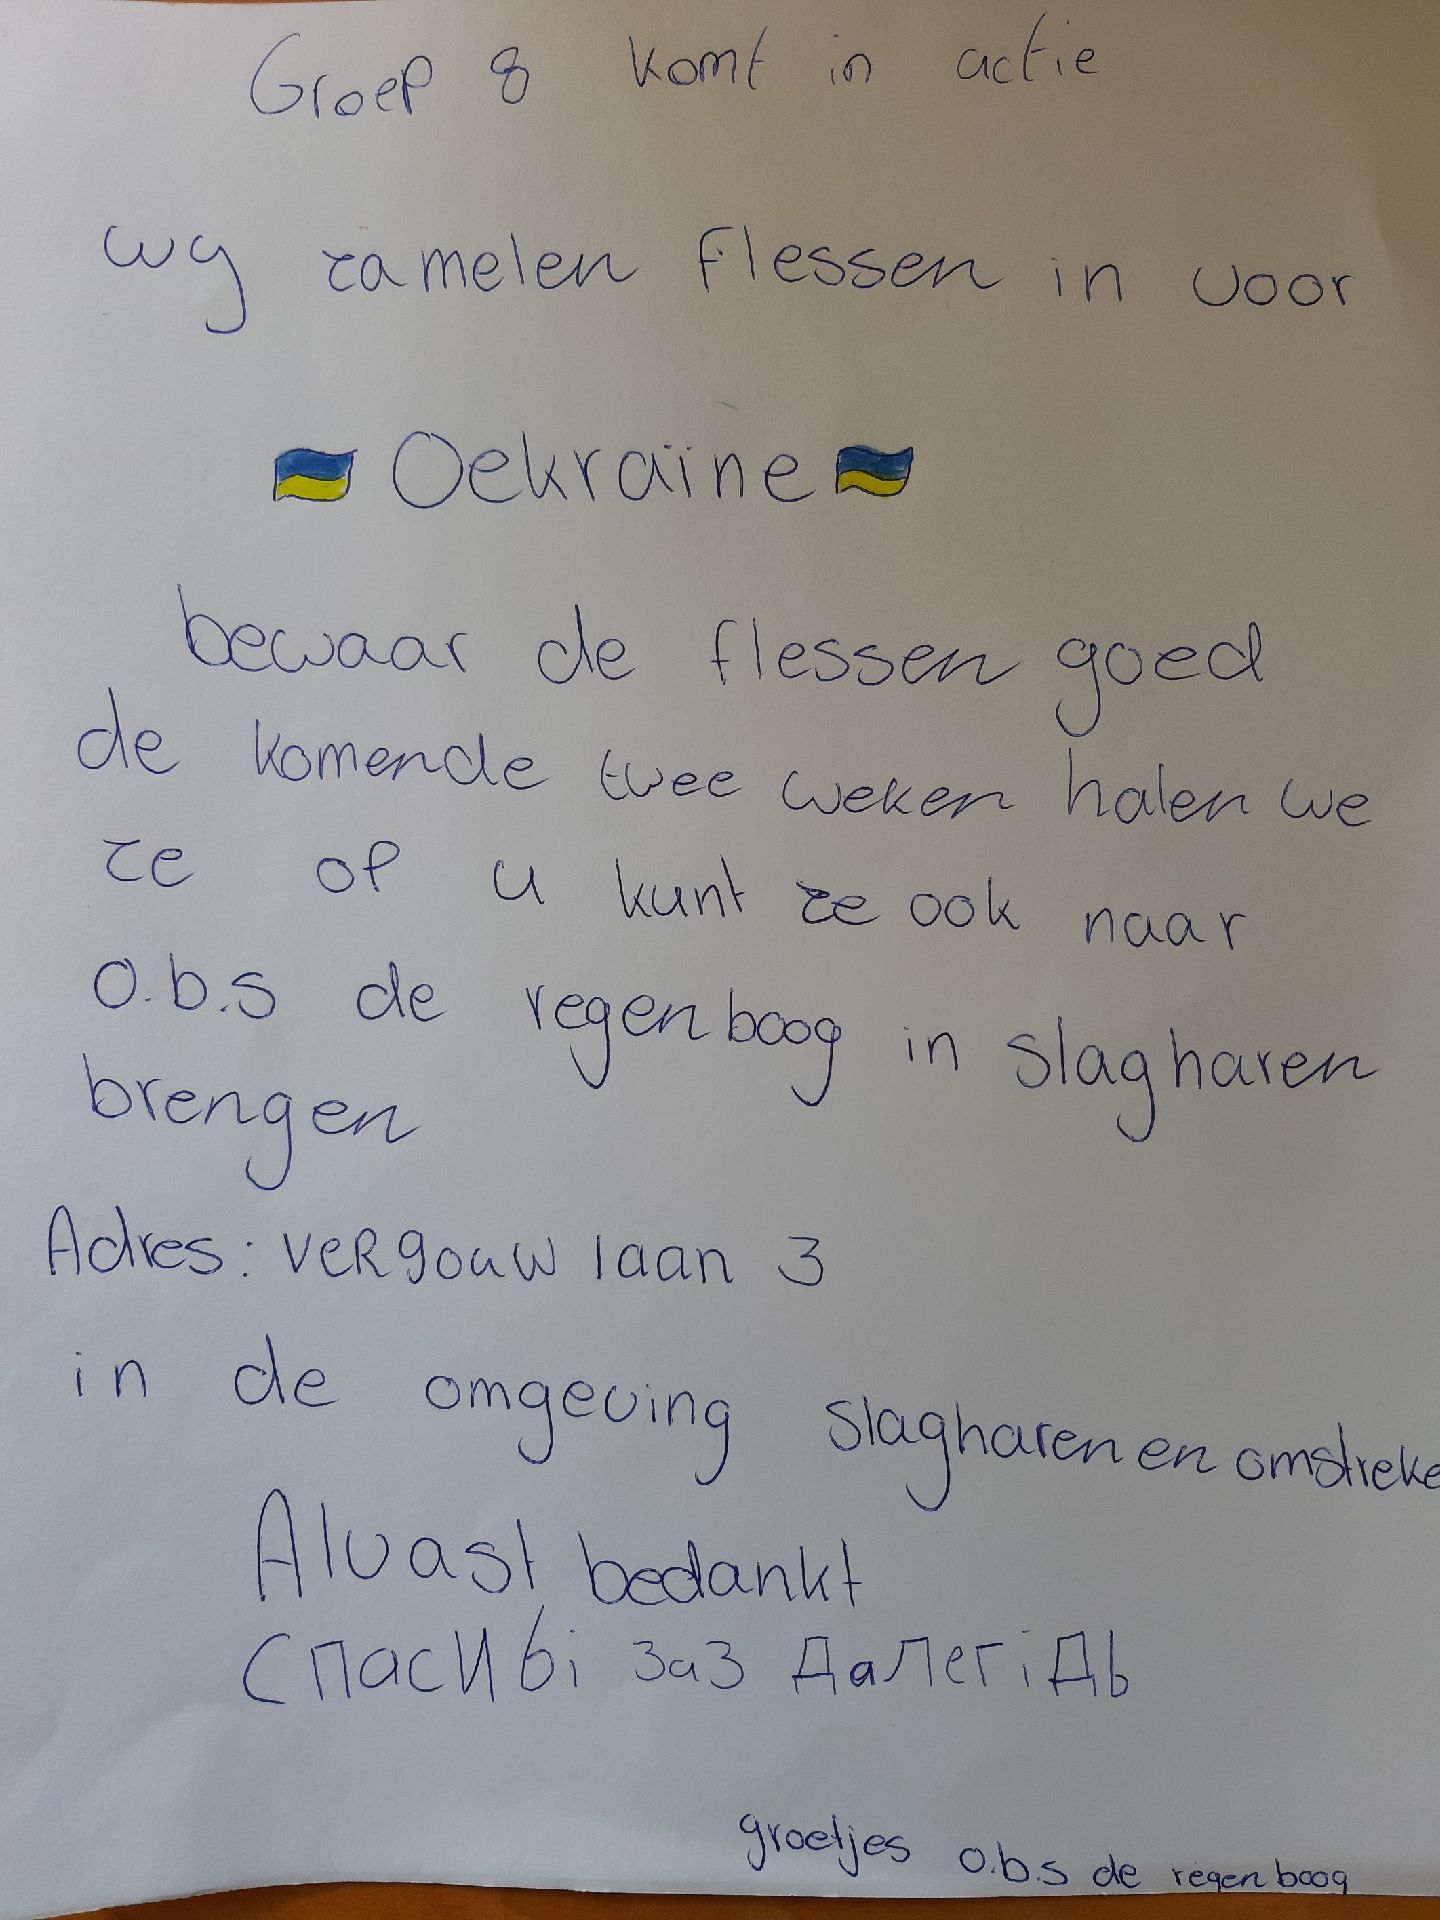 Groep 8 komt in actie
wy zamelen flessen in voor
Oekraïne
bewaar de flessen goed
de komende twee weken halen we
ze op u kunt ze ook naar
o.b.s de regenboog in slagharen
brengen
Adres: Vergouwlaan 3
in de omgeving slagharen en omstreke
Alvast bedankt
Спасибі заз далегідь
groetjes o.b.s de regenboog